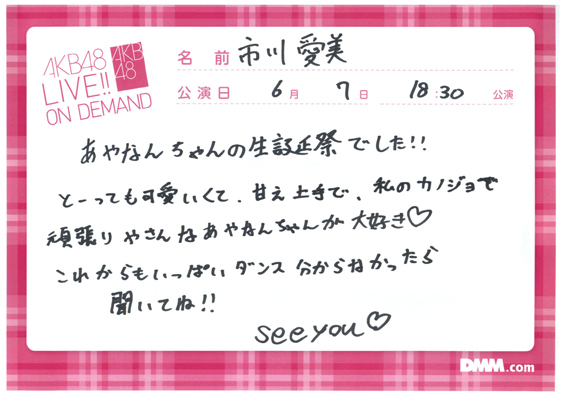 AKB48
LIVE!!
ON DEMAND
AKB
48
名前 市川愛美
公演日 6月 7日 18:30 公演
あやなんちゃんの生誕祭でした!!
とーっても可愛いくて、甘え上手で、私のカノジョで
頑張りやさんなあやなんちゃんが大好き♡
これからもいっぱいダンス分からなかったら
聞いてね!!
see you♡
DMM.com